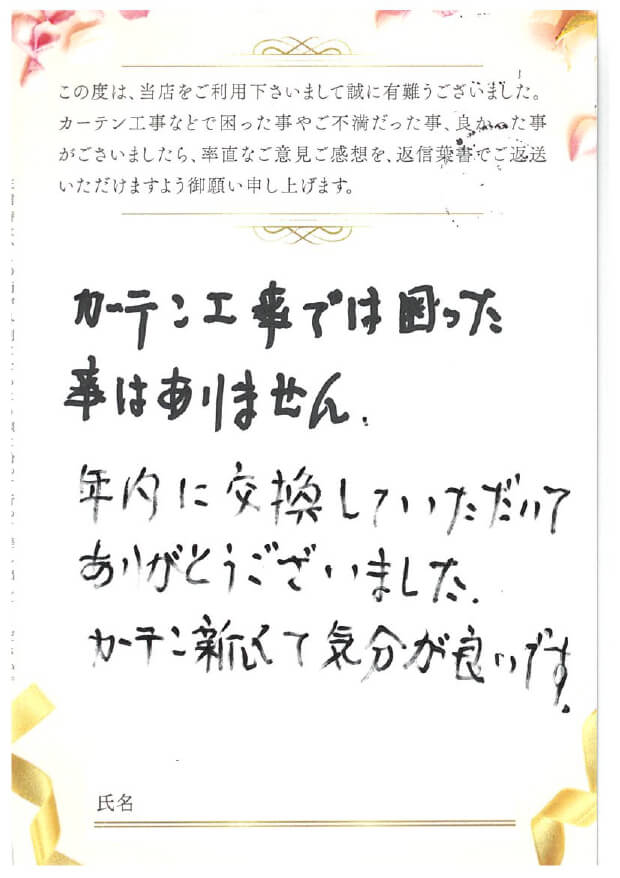 この度は、当店をご利用下さいまして誠に有難うございました。
カーテン工事などで困った事やご不満だった事、良かった事
がございましたら、率直なご意見ご感想を、返信葉書でご返送
いただけますよう御願い申し上げます。
カーテン工事では困った
事はありません.
年内に交換していただいて
ありがとうございました.
カーテン新しくて気分が良いです.
氏名